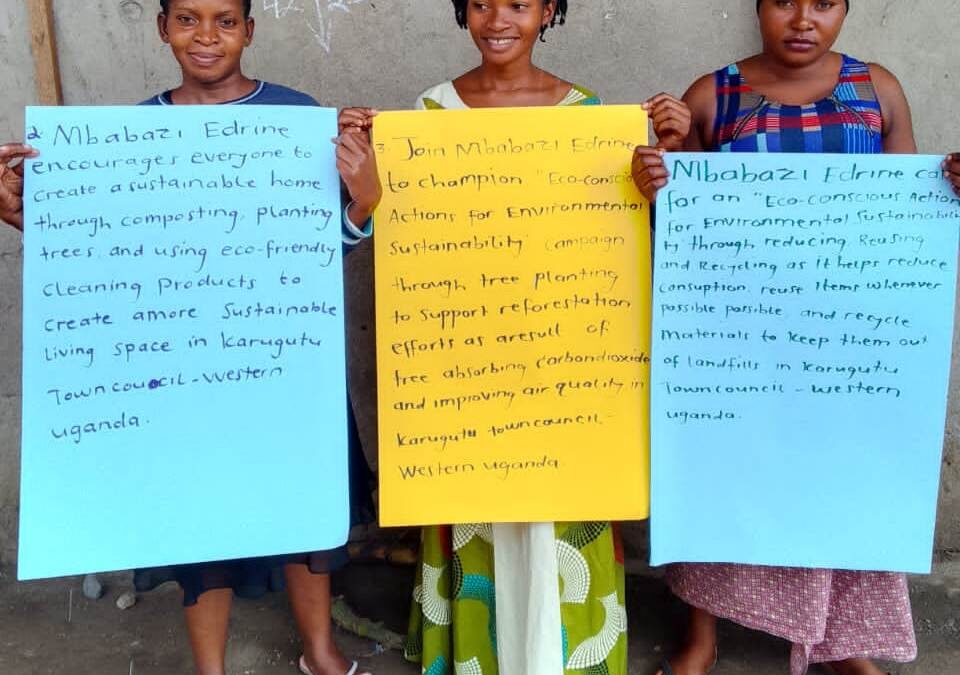 2. Mbabazi Edrine
encourages everyone to
create a sustainable home
through composting, planting
trees, and using eco-friendly
cleaning products to
create amore Sustainable
living space in Karugutu
Towncouocil - Western
uganda.
3. Join Mbabazi Edrine
to champion "Eco-conscio
Actions for Environmental
Sustainability campaign
through tree planting
to support reforestation
efforts as aresult of
tree absorbing carbondioxide
and improving air quality in
Karugutu towncouncil -
Western uganda.
Mbabazi Edrine cal
for an "Eco-conscious Action
for Environmental Sustainabili
ty through reducing Reusing
and Recycling as it helps reduce
consuption, reuse Items whenever
possible possible, and recycle
Materials to keep them out
of landfills in Karugutu
Towncouncil - western
uganda.